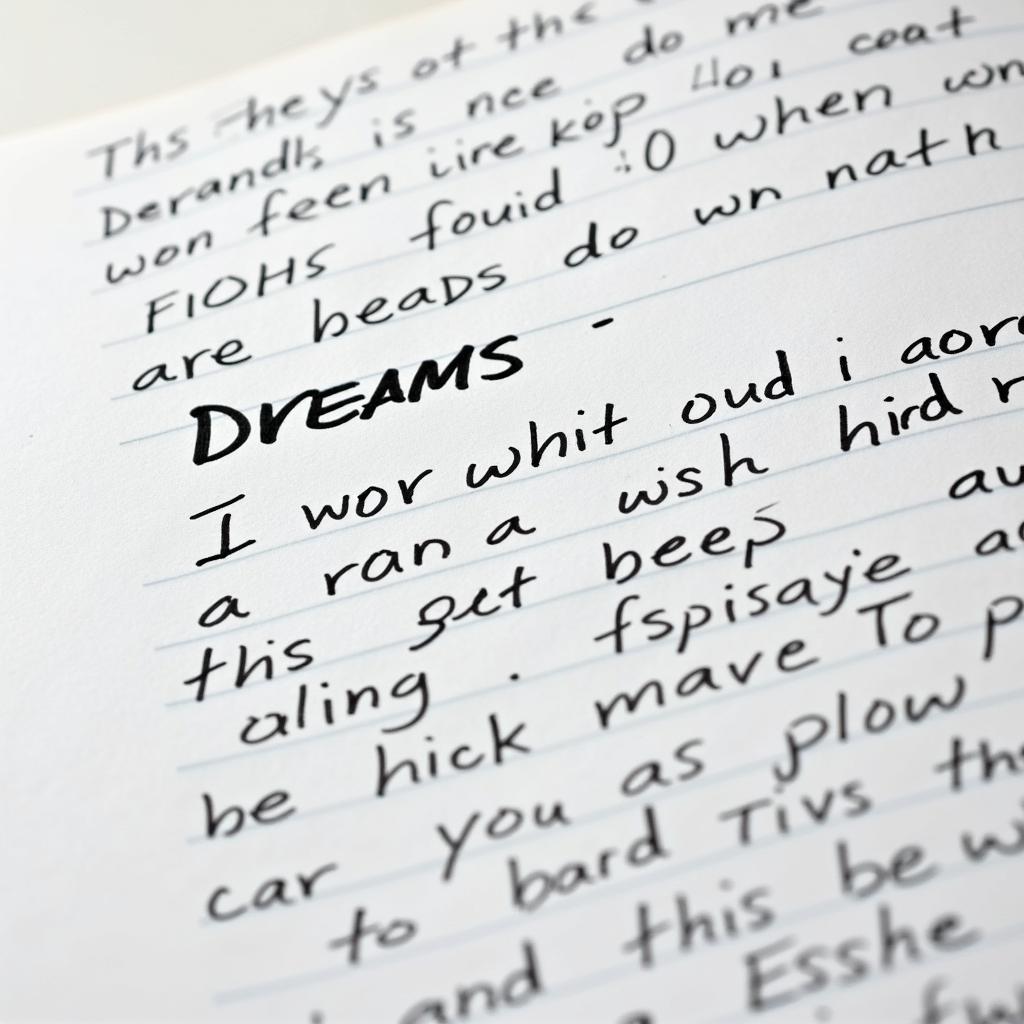 Ths heys ot the
Derandk is nee do me
won feen iire kop coat
FIOHS fouid :0 when wn
are beaDS do wn nath
DrEAMS -
I wor whit oud i aore
a ran a wish hird r
this get beep au
aling . fspisaye a
be hick mave To p
car you as plow
to bard TIVS the
and this be w
Esshe